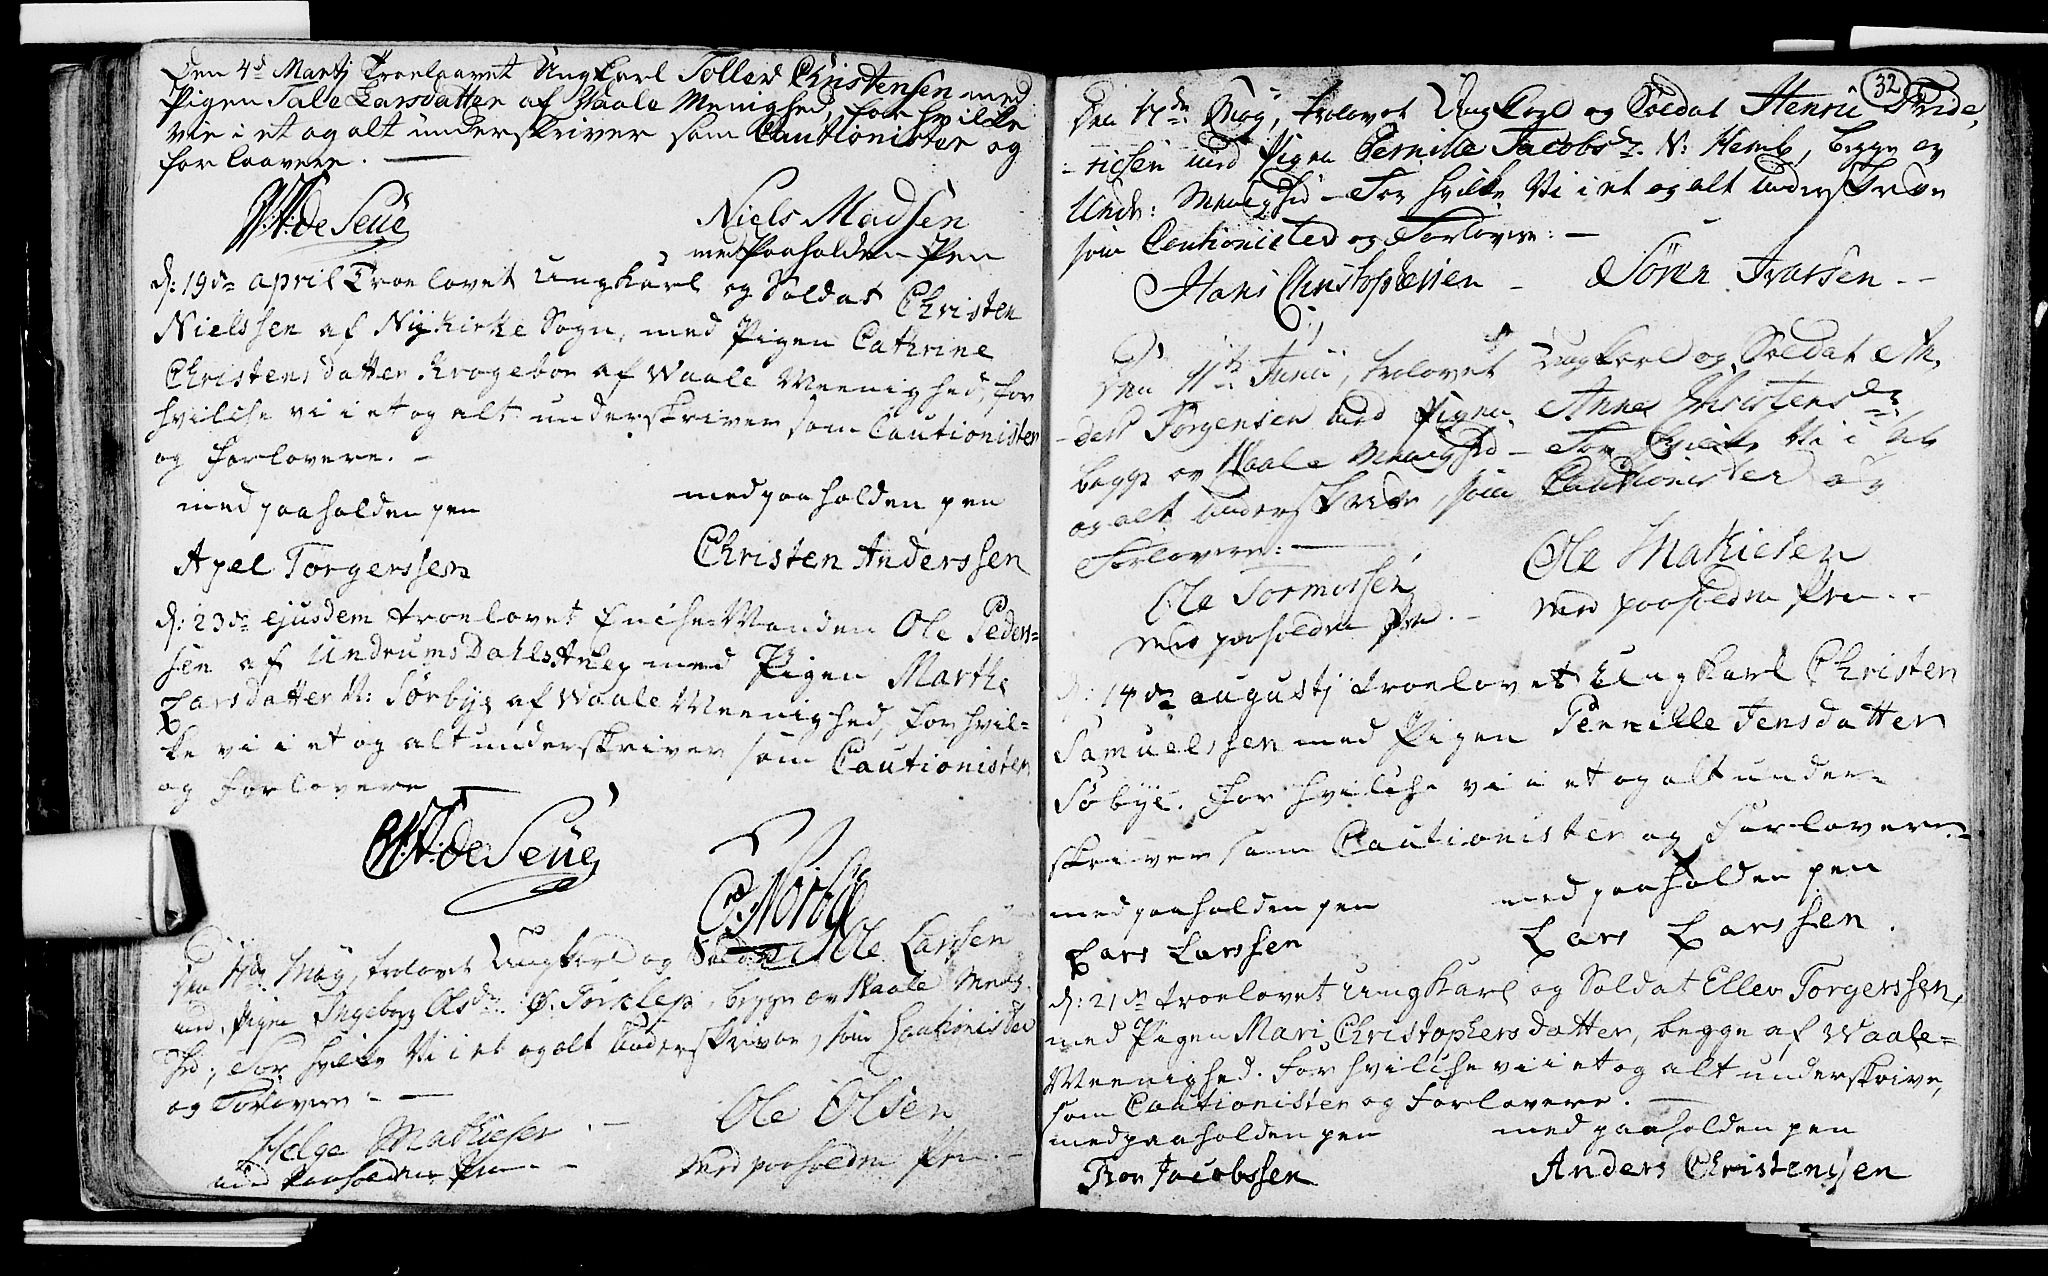 Den 4d Martj Troelaavet Ungkarl Tollev Christensen med
Pigen Tale Larsdatter af Vaale Menighed, for hvilke
vie i et og alt underskriver som Cautionister og
forlaavere. —
de Seue
Niels Madsen
med Paaholden Pen
d: 19de april Troelovet ungkarl og Soldat Christen
Nielssen af Nykirke Sogn, med Pigen Cathrine
Christensdatter Krogeboe af Waale Meenighed, for
hvilche vi i et og alt underskriver som Cautionister
og forlovere. —
med paaholden pen
med paaholden pen
Apel Torgerssen
Christen Anderssen
d: 23de ejusdem troelovet Enche Manden Ole Peders=
sen af Undrumsdahls med Pigen Marthe
Larsdatter N: Sørbye af Waale Meenighed, for hvil=
ke vi i et og alt underskriver som Cautionister
og forlovere —
de Seue
Den May, trolovet Ungkarl og Soldat Ole Larssen
med Pigen Ingeborg Olsdr: begge av Waale Menig
hed, For hvilke Vi i et og alt underskrivere, som Cautionister
og Forlovere — —
Helge Mathiesen. —
Ole Olsen
med paaholden Pen. —
med paaholden Pen. —
32
Den 17de May, trolovet Ungkarl og Soldat Henric Fride,
-ricsen med Pigen Pernille Jacobsdr. N: Hemb, begge av
Undr: Menighed — For hvilke Vi i et og alt underskrive
som Cautionister og Forlovere: —
Hans Christophersen —
Søren Ivarsen. —
Den 11te Junii, trolovet Ungkarl og Soldat An,
-ders Jørgensen med Pigen Anne Christensdr
begge av Waale Menighed — For hvilke Vi i et
og alt underskrive, som Cautionister og
Forlovere: —
Ole Mathiesen
Ole Tormorsen
med paaholden Pen. —
med paaholden Pen. —
d: 14de augustj troelovet Ungkarl Christen
Samuelssen med Pigen Pernille Jensdatter
Søbye. for hvilche vi i et og alt under=
skriver som Cautionister og Forlovere.=
med paaholden pen
med paaholden pen
Lars Larssen
Lars Larssen.
d: 21de troelovet ungkarl og Soldat Ellev Torgerssen,
med Pigen Mari Christophersdatter, begge af Waale=
Meenighed. for hvilche vi i et og alt underskrive,
som Cautionister og forlovere. —
med paaholden pen
med paaholden pen
Thor Jacobssen
Anders Christenssen